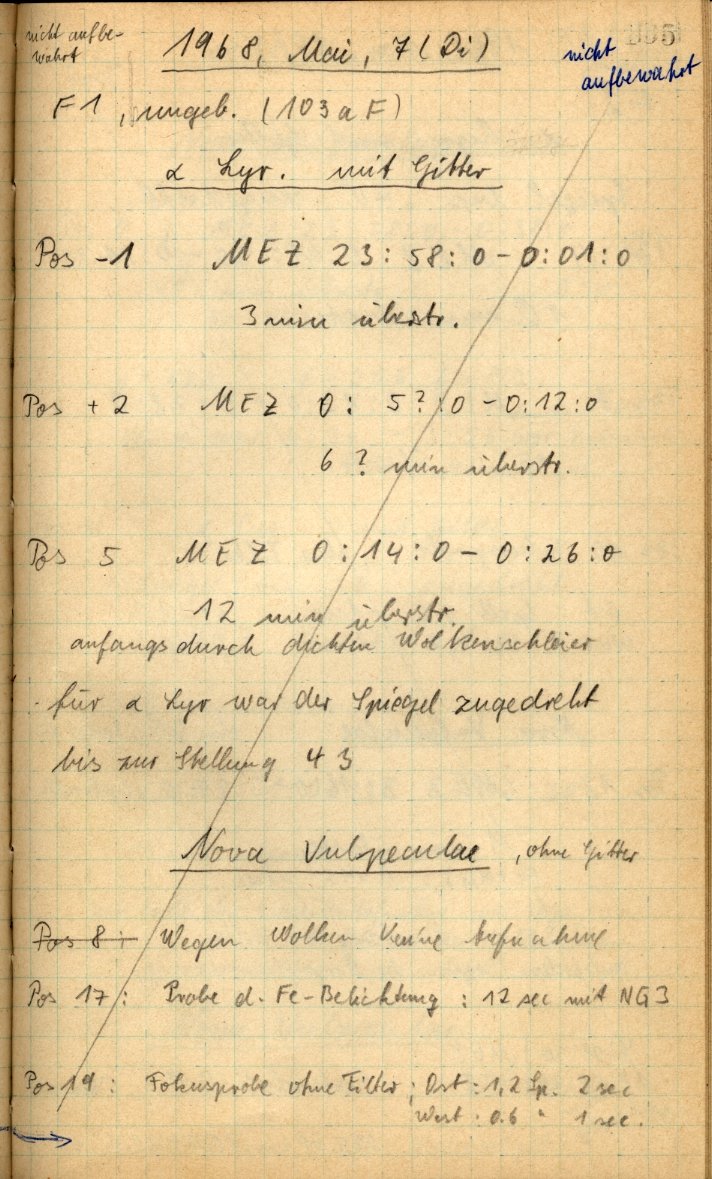 nicht aufbe-
wahrt
1968, Mai, 7 (Di)
nicht
aufbewahrt
F1, ungeb. (103aF)
α Lyr. mit Gitter
Pos -1 MEZ 23:58:0 - 0:01:0
3 min überstr.
Pos +2 MEZ 0: 5?:0 - 0:12:0
6 ? min überstr.
Pos 5 MEZ 0:14:0 - 0:26:0
12 min überstr.
anfangs durch dichten Wolkenschleier
für α Lyr war der Spiegel zugedreht
bis zur Stellung 43
Nova Vulpeculae, ohne Gitter
Pos 8: Wegen Wolken keine Aufnahme
Pos 17: Probe d. Fe-Belichtung: 12 sec mit NG3
Pos 19: Fokusprobe ohne Filter; Ost: 1,2 Sp. 2 sec
West: 0.6 " 1 sec.